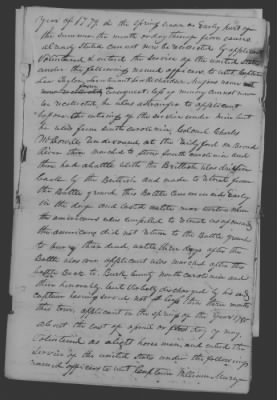 year of 1779 in the Spring season or Early part of
the Summer the month or day through from causes
already stated cannot now be recollected by applicant
Volunteered & entered the service of the united States
under the following named officers, to wit Captain
Lee Taylor Lieutenant
consequent loss of memory cannot now
be recollected he was a stranger to applicant
before the entering of the service under him but
he was from South carolina, Colonel Charles
McDowell rendezvoused at the Ridgford on Broad
River then marched to South carolina and
there had a battle with the British, was driven
back by the British and made to retreat from
the Battle ground this Battle commenced early
in the day and lasted until near when
the americans was compelled to retreat as aforesaid
the americans did not return to the Battle ground
to bury their dead, until three days after the
Battle was over applicant was marched with the
Back to Burk County north carolina and
then honorably but Verbally discharged by his
captain having served not less than three months
this tour, applicant in the Spring of the year 1780
about the last of april or first day of may
Volunteered as a light horse man, and entered the
Service of the united States under the following
named officers to wit Captain William